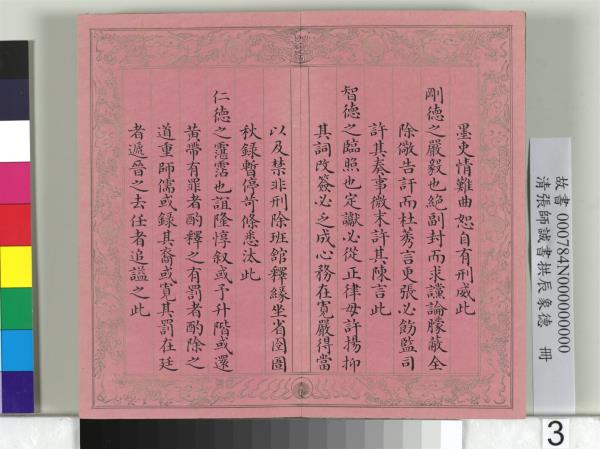 墨吏情難曲恕自有刑威此
剛德之嚴毅也絕副封而求讜論朦蔽全
除儆告訐而杜莠言更張必飭監司
許其奏事微末許其陳言此
智德之臨照也定讞必從正律毋許揚抑
其詞改簽必之成心務在寬嚴得當
以及禁非刑除班館釋緣坐省囹圄
秋録暫停苛條悉汰此
仁德之霑也誼隆惇叙或予升階或還
黃帶有罪者酌釋之有罰者酌除之
道重師儒或録其裔或寬其罰在廷
者遞晉之去任者追謚之此
故書 000784N000000000
清張師誠書拱辰象德 冊
3